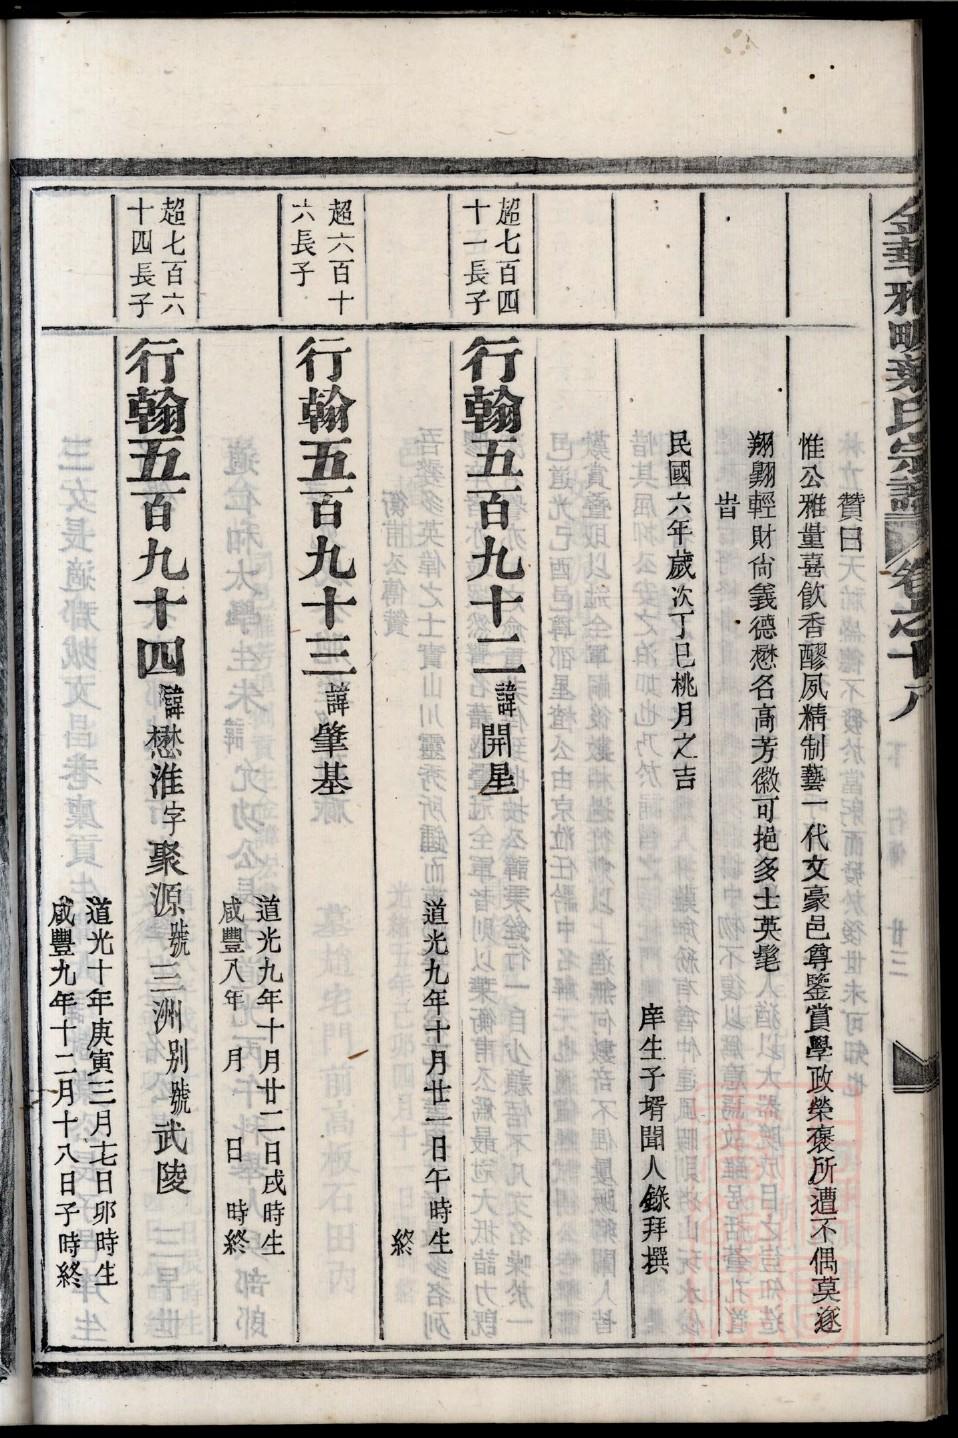 金華雅畈葉氏宗譜 卷之十八
贊曰
惟公雅量喜飲香醪夙精制藝一代文豪邑尊鑒賞學政榮褒所遭不偶莫逐
翔翺輕財尙義德懋名高芳徽可挹多士英髦
旹
民國六年歲次丁巳桃月之吉
庠生子壻聞人錄拜撰
超七百四
十一長子
行翰五百九十二諱開星
道光九年十月廿一日午時生
終
超六百十
六長子
行翰五百九十三諱肇基
道光九年十月廿二日戌時生
咸豐八年 月 日 時終
超七百六
十四長子
行翰五百九十四諱懋淮字聚源號三洲別號武陵
道光十年庚寅三月七日卯時生
咸豐九年十二月十八日子時終